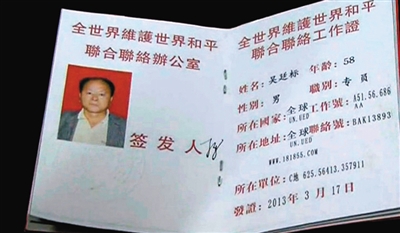 全世界維護世界和平
聯合聯絡辦公室
签发人
全世界維護世界和平
聯合聯絡工作證
姓名：吴廷标 年龄：58
性別：男 職別：专員
所在國家：全球 工作號：A51.56.686
UN.UED AA
所在地址：全球 聯絡號：BAK13893
UN.UED
www.181855.COM
所在單位：C總 625.56413.357911
發證：2013年3月17日